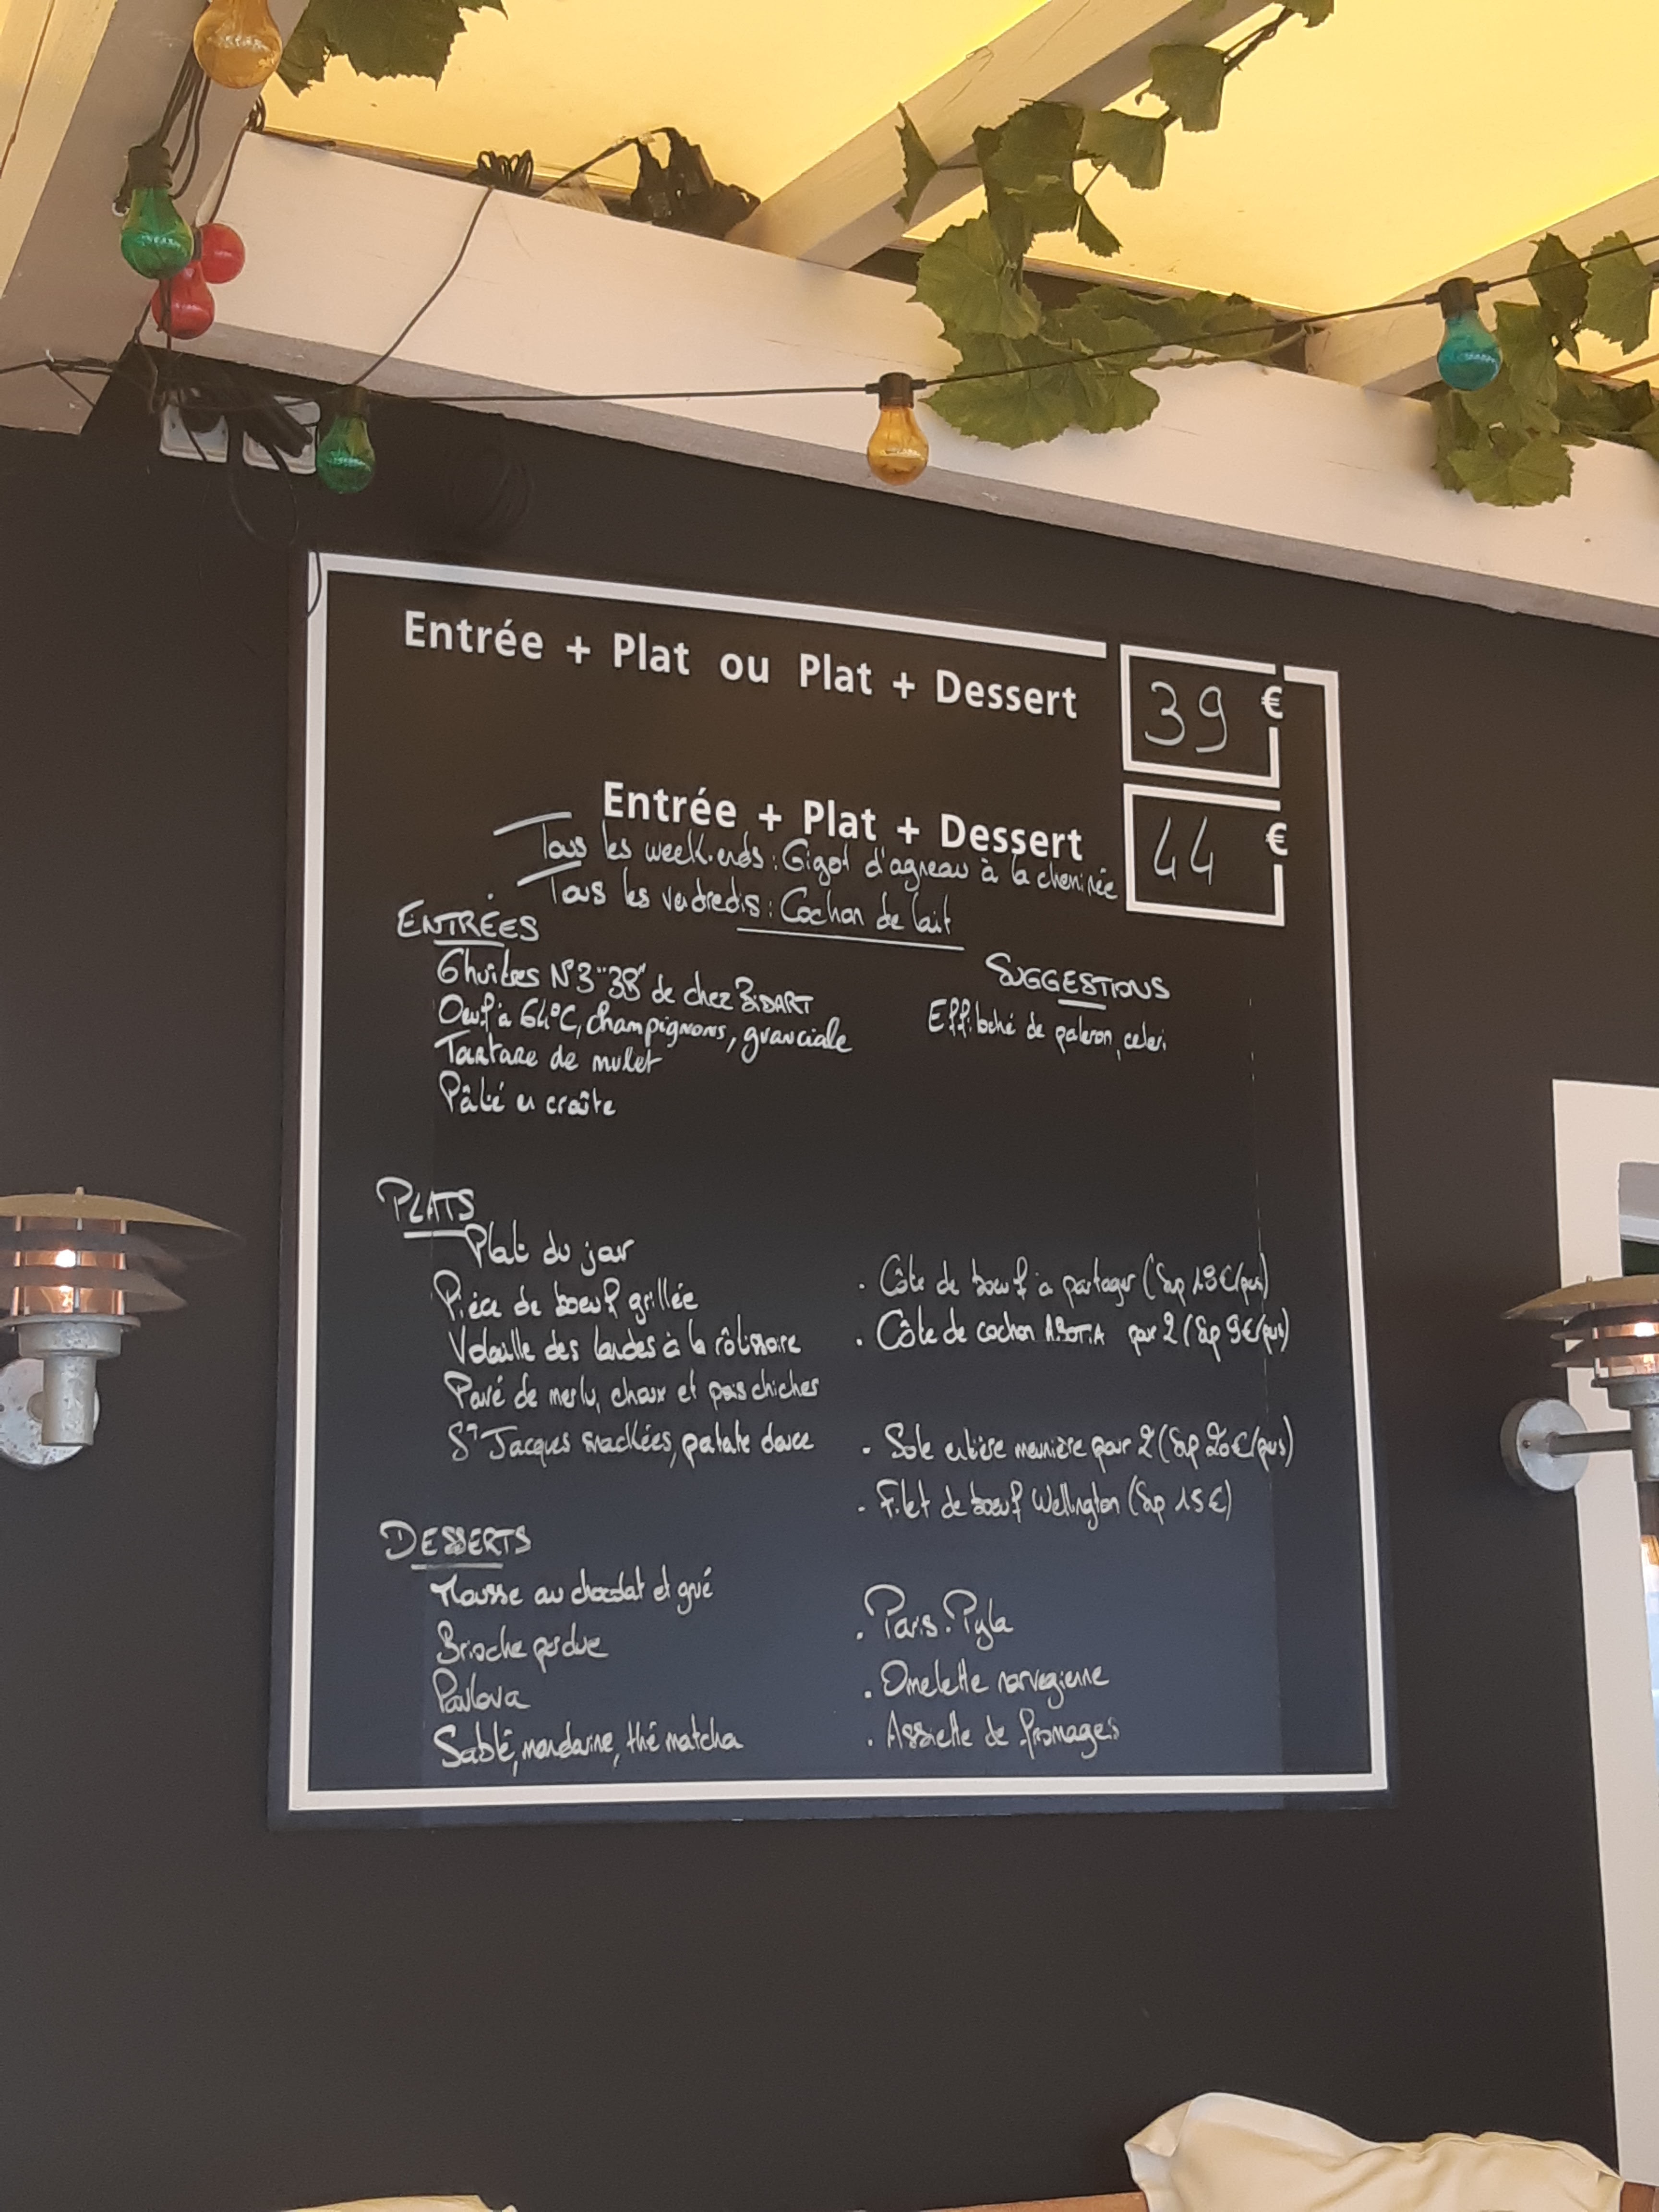 Entrée + Plat ou Plat + Dessert 39 €
Entrée + Plat + Dessert 44 €
Tous les week-ends : Gigot d'agneau à la cheminée
Tous les vendredis : Cochon de lait
ENTRÉES
6 huîtres N°3 "38" de chez BIDART
Oeuf à 64°C, champignons, guanciale
Tartare de mulet
Pâté en croûte
SUGGESTIONS
Effiloché de paleron, celeri
PLATS
Plat du jour
Pièce de boeuf grillée
Volaille des landes à la rôtissoire
Pavé de merlu, choux et pois chiches
St Jacques snackées, patate douce
. Côte de boeuf à partager (Sup 18€/pers)
. Côte de cochon pour 2 (Sup 9€/pers)
. Sole entière meunière pour 2 (Sup 20€/pers)
. Filet de boeuf Wellington (Sup 15€)
DESSERTS
Mousse au chocolat et grué
Brioche perdue
Pavlova
Sablé, mandarine, thé matcha
. Paris-Pyla
. Omelette norvegienne
. Assiette de fromages